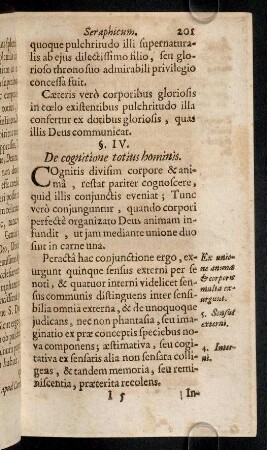 Seraphicum. 201
quoque pulchritudo illi supernatura-
lis ab ejus dilectissimo filio, seu glo-
rioso throno suo admirabili privilegio
concessa fuit.
Cæteris verò corporibus gloriosis
in cœlo existentibus pulchritudo illa
confertur ex dotibus gloriosis, quas
illis Deus communicat.
§. IV.
De cognitione totius hominis.
COgnitis divisim corpore & ani-
mâ, restat pariter cognoscere,
quid illis conjunctis eveniat; Tunc
verò conjunguntur, quando corpori
perfectè organizato Deus animam in-
fundit, ut jam mediante unione duo
sint in carne una.
Peractâ hac conjunctione ergo, ex-
urgunt quinque sensus externi per se
noti, & quatuor interni videlicet sen-
sus communis distinguens inter sensi-
bilia omnia externa, & de unoquoque
judicans, nec non phantasia, seu ima-
ginatio ex præ conceptis speciebus no-
va componens; æstimativa, seu cogi-
tativa ex sensatis alia non sensata colli-
geas, & tandem memoria, seu remi-
niscentia, præterita recolens.
Ex unio-
ne animæ
& corporis
multa ex-
urgunt.
5. Sensus
externi.
4. Inter-
ni.
I 5 In-